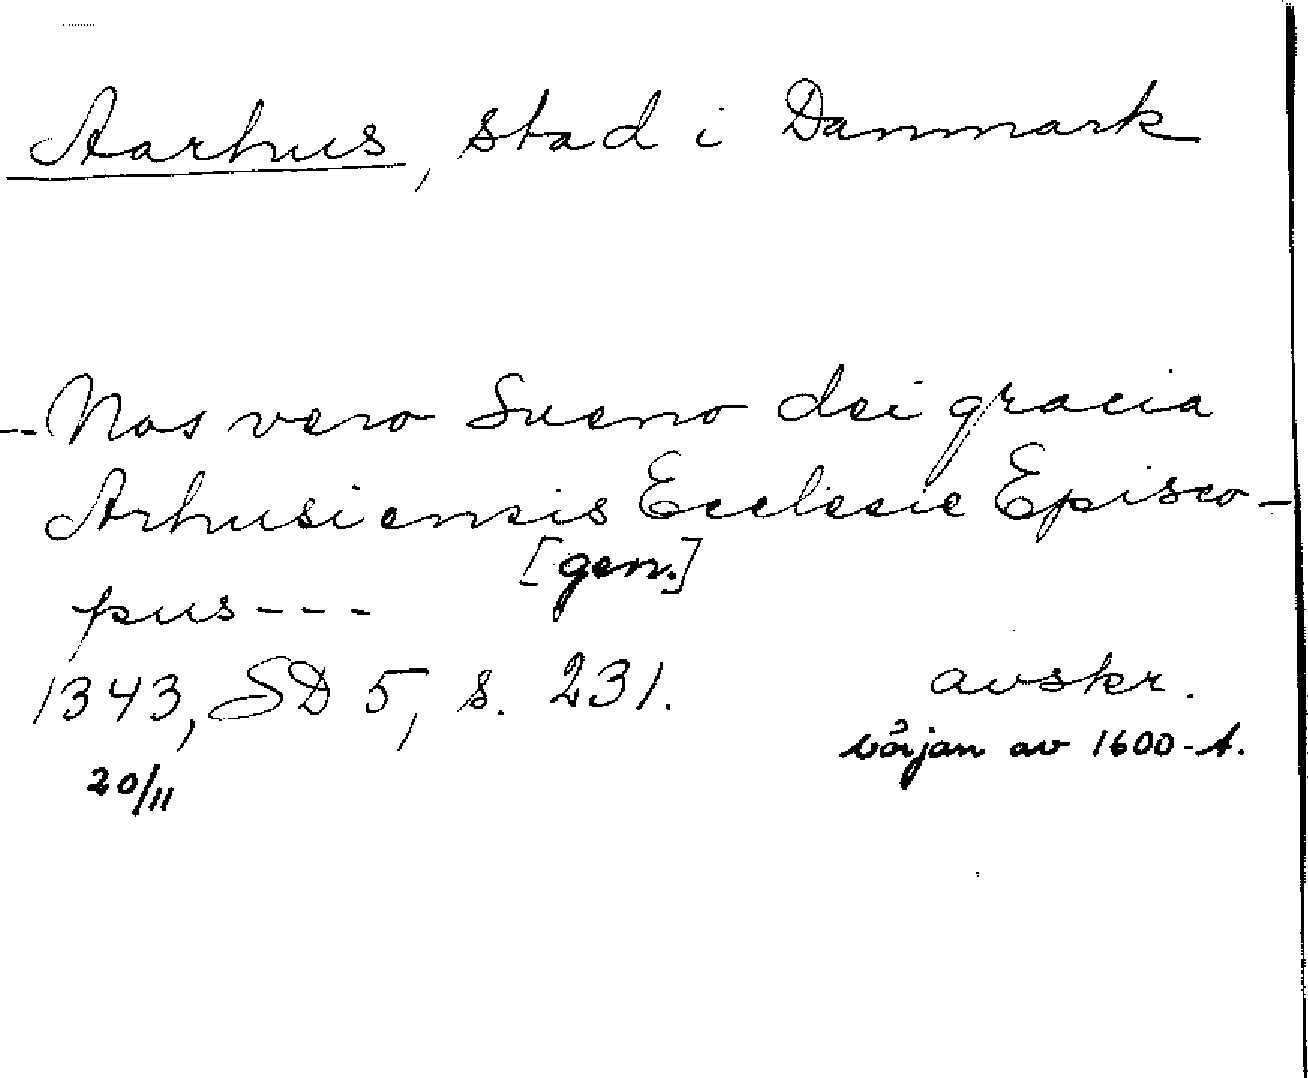 Aarhus, stad i Danmark
--Nos vero Sueno dei gracia
Arhusiensis Ecclesie Episco-
[gen.]
pus---
1343, SD 5, s. 231.
avskr.
början av 1600-t.
20/11